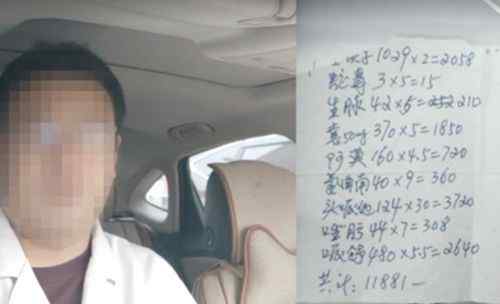 1029×2=2058
3×5=15
生脉 42×5=252 210
50mg 370×5=1850
160×4.5=720
南 40×9=360
头哌 124×30=3720
44×7=308
哌舒 480×5.5=2640
共计: 11881一